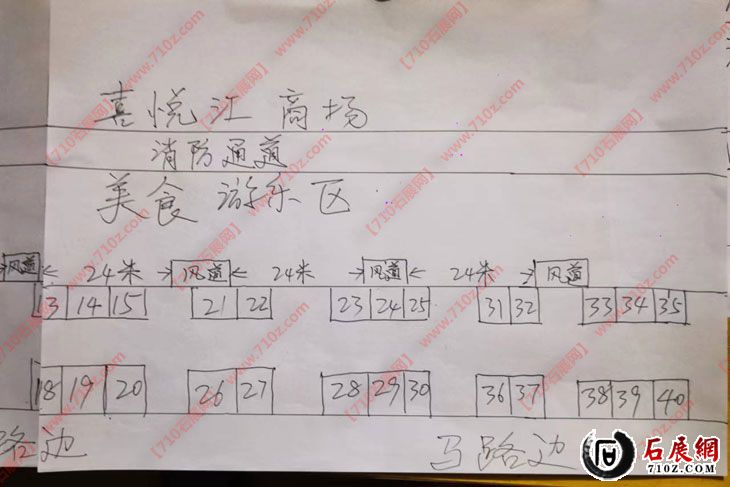 喜悦汇 商场
消防通道
美食 游乐区
风道 24米 风道 24米 风道 24米 风道
13 14 15 21 22 23 24 25 31 32 33 34 35
18 19 20 26 27 28 29 30 36 37 38 39 40
路边 马路边
12
石展網
710z.com
【710石展网】
www.710z.com